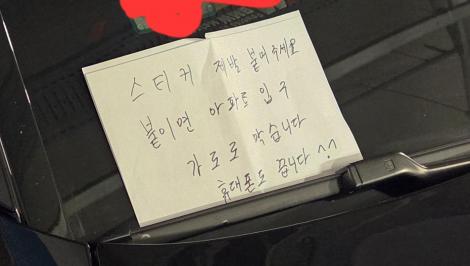 스티커 제발 붙여주세요
붙이면 아파트 입구
가로로 막습니다
휴대폰도 끕니다 ^^